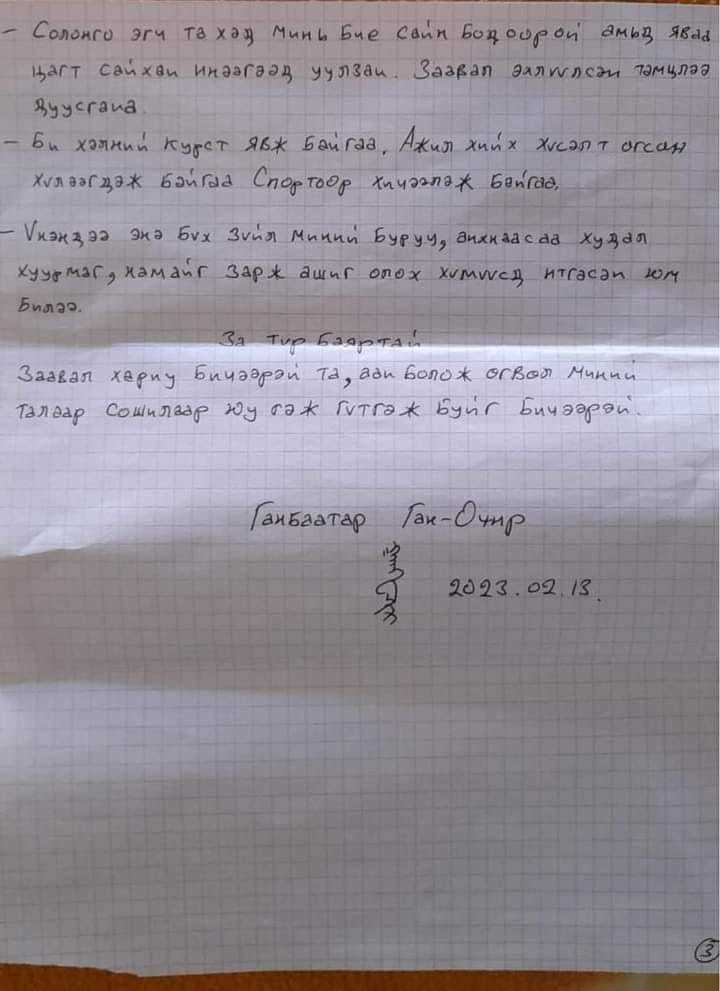 – Солонго эгч та хэд минь бие сайн бодоорой амьд яваа
цагт сайхан инээгээд уулзан. Заавал эхлүүлсэн тэмцлээ
дуусгана.
– Би хэлний курст явж байгаа, Ажил хийх хүсэлт өгсөн
хүлээгдэж байгаа Спортоор хичээлэж байгаа.
– Үнэндээ энэ бүх зүйл миний буруу, анхнаасаа худал
хуурмаг, намайг зарж ашиг олох хүмүүсд итгэсэн юм
билээ.
За түр баяртай
Заавал хариу бичээрэй та, аан болож өгвөл миний
талаар сошилаар юу гэж гүтгэж буйг бичээрэй.
Ганбаатар Ган-Очир
2023.02.13.
3